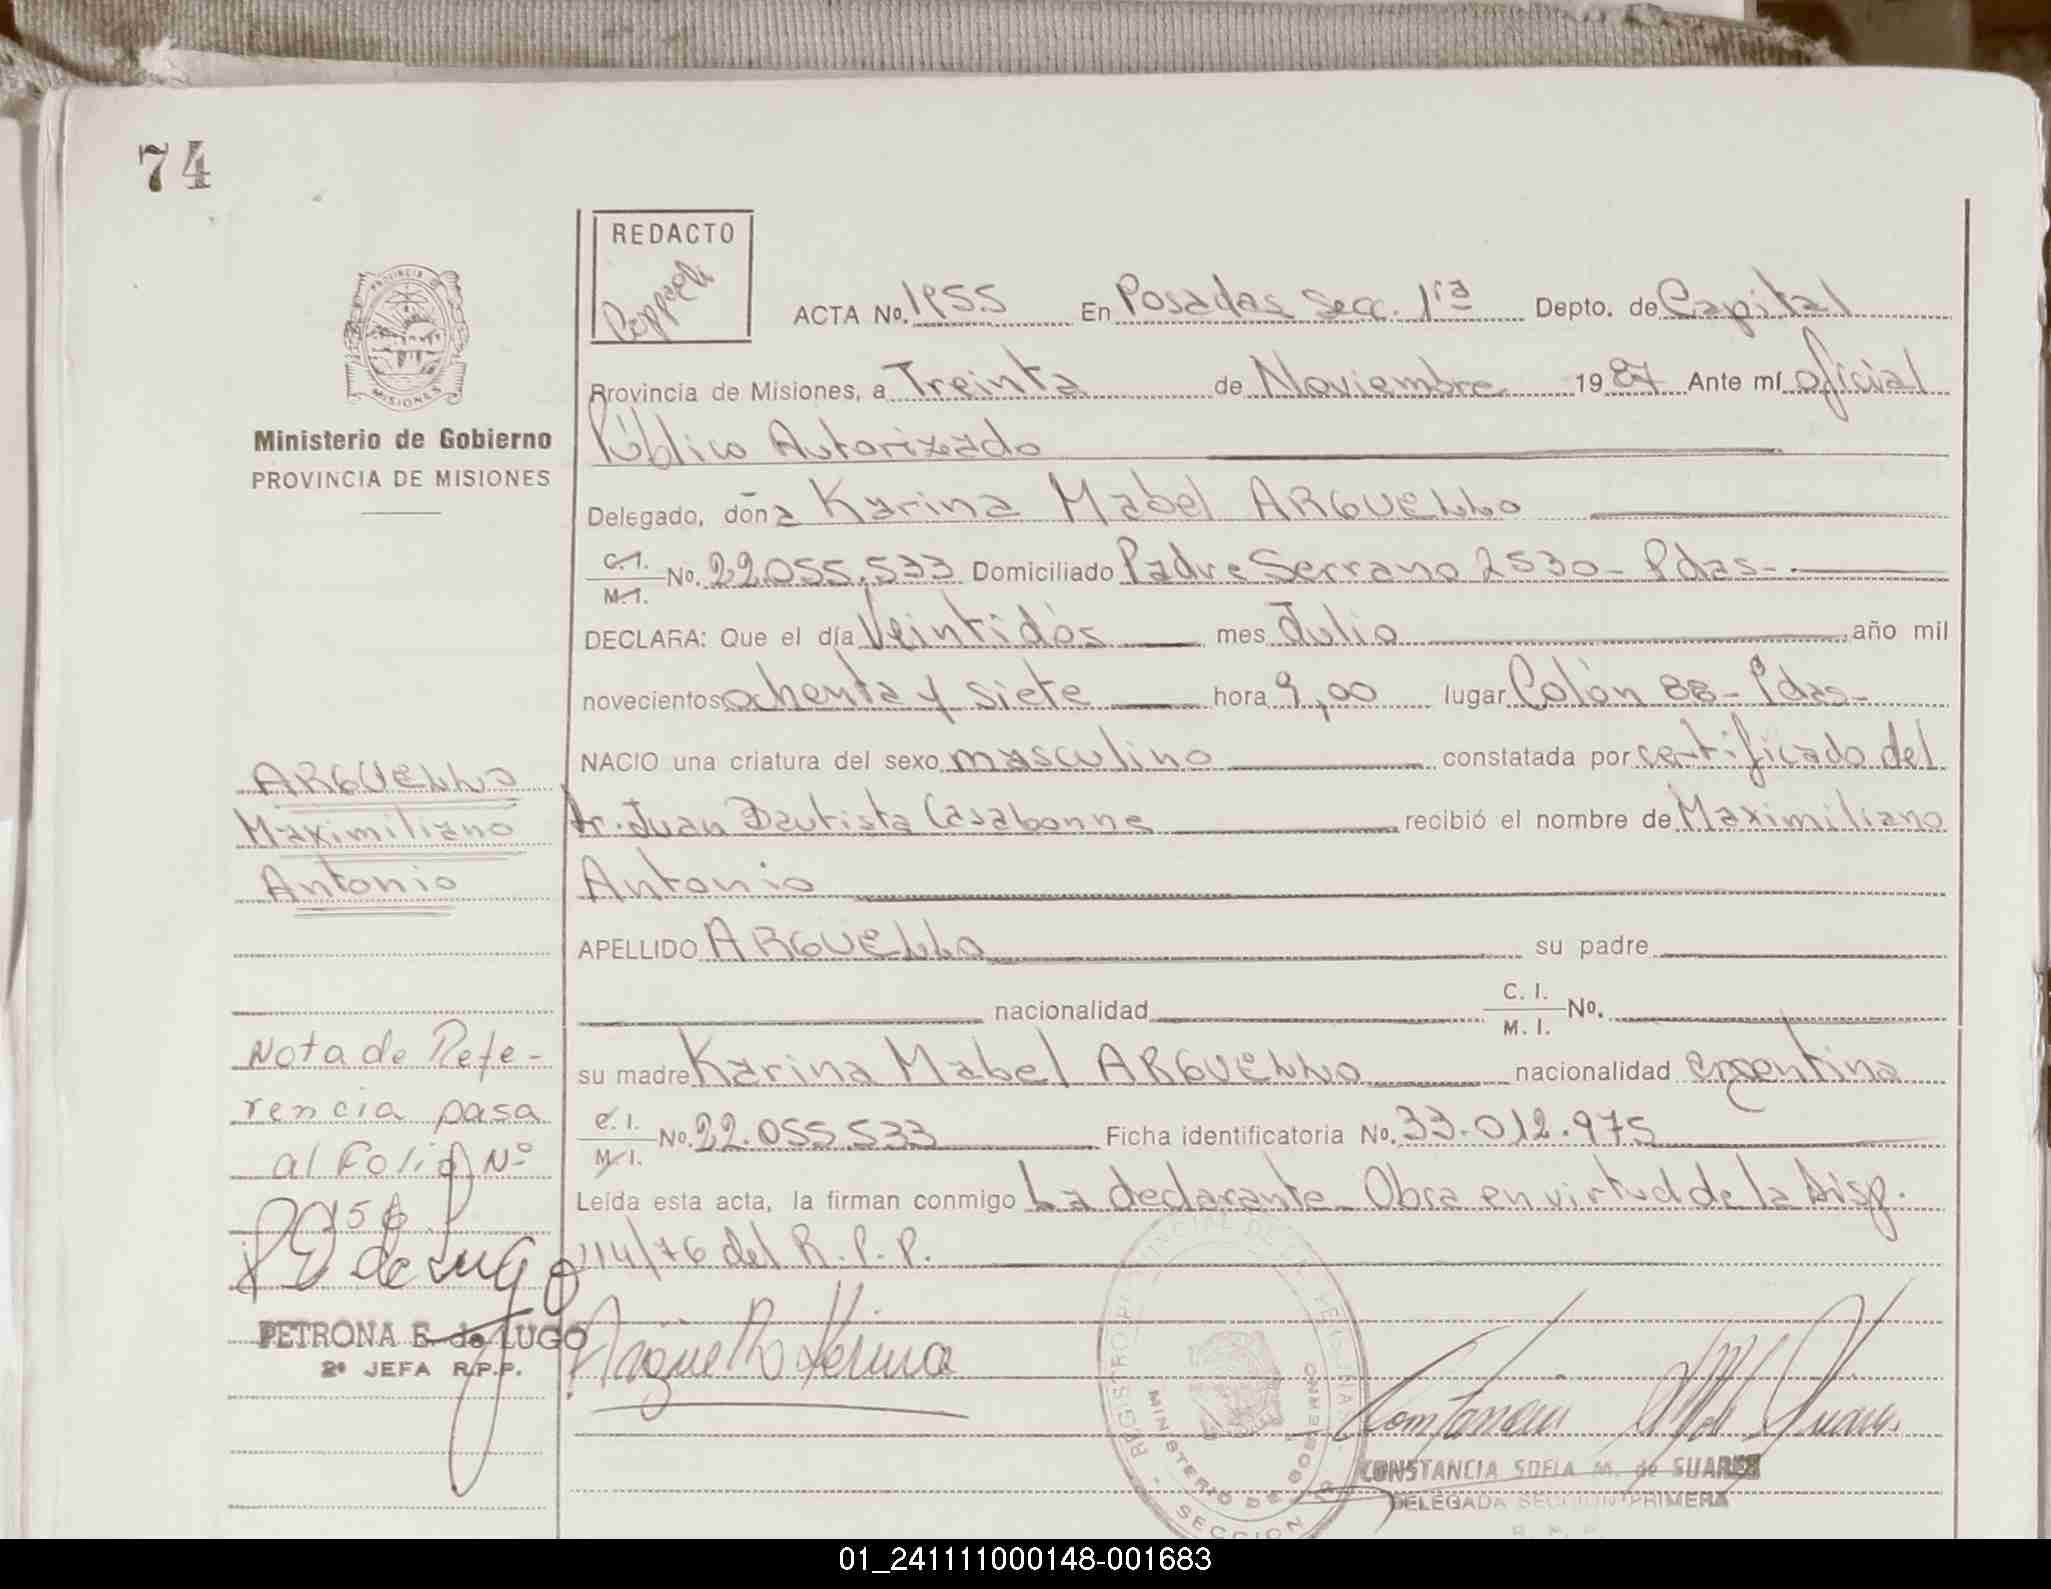 74
REDACTO
PROVINCIA
MISIONES
ACTA No. 1955 En Posadas Secc. 1ra Depto. de Capital
Provincia de Misiones, a Treinta de Noviembre 1987 Ante mí oficial
Ministerio de Gobierno
Público Autorizado
PROVINCIA DE MISIONES
Delegado, doña Karina Mabel ARGUELLO
C.I. M.I. No. 22.055.533 Domiciliado Padre Serrano 2530- Pdas-
DECLARA: Que el día Veintidós mes Julio año mil
novecientos ochenta y siete hora 9,00 lugar Colón 88- Pdas-
NACIO una criatura del sexo masculino constatada por certificado del
ARGUELLO
Dr. Juan Bautista Casabonne recibió el nombre de Maximiliano
Maximiliano
Antonio
Antonio
APELLIDO ARGUELLO su padre
nacionalidad C. I. M. I. No.
Nota de Refe-
su madre Karina Mabel ARGUELLO nacionalidad argentina
rencia pasa
C. I. M. I. No. 22.055.533 Ficha identificatoria No. 33.012.975
al Folio Nº
Leída esta acta, la firman conmigo La declarante- Obra en virtud de la Disp.
156
114/76 del R.P.P.
PE de Lugo
PETRONA E. de LUGO
2ª JEFA R.P.P.
Arguello Karina
MINISTERIO DE GOBIERNO
SECCION
CONSTANCIA SOFIA M. de SUAREZ
DELEGADA SECCION PRIMERA
01_241111000148-001683